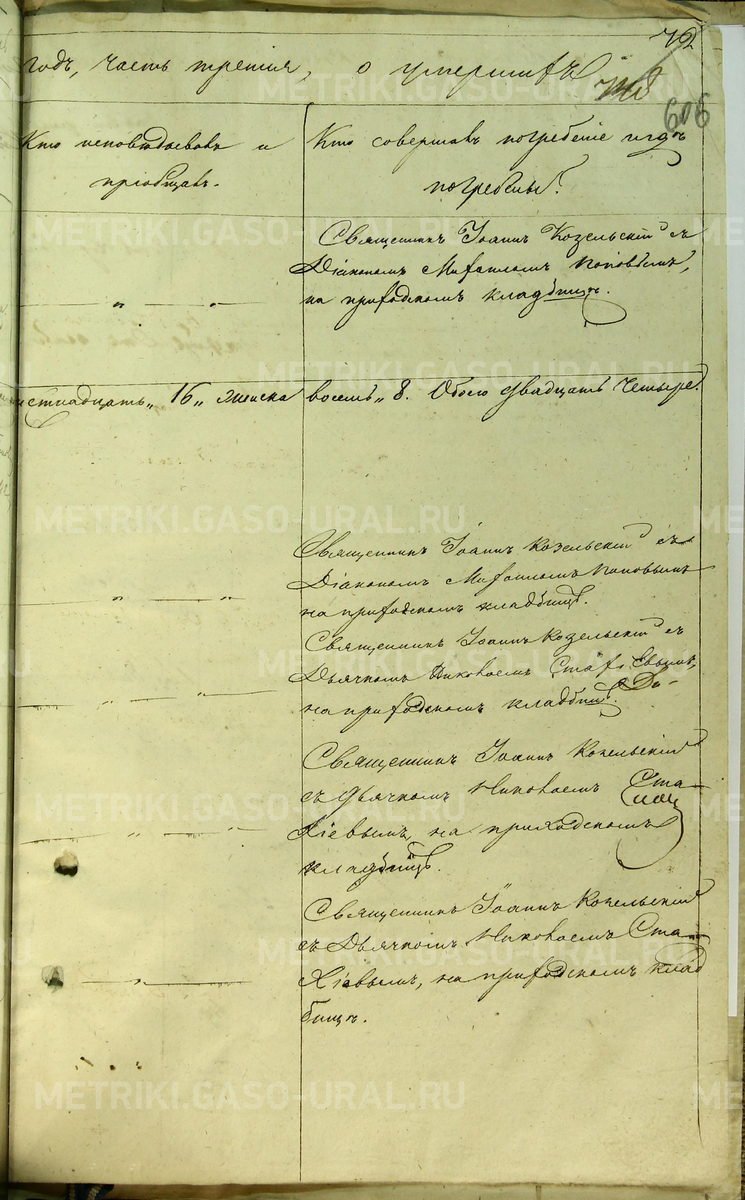 72
годъ, часть третія, о умершихъ
606
Кто исповѣдывалъ и
пріобщалъ.
Кто совершалъ погребеніе и гдѣ
погребены?
Священникъ Іоаннъ Козельскій съ
Діакономъ Михаиломъ Поповымъ,
на приходскомъ кладбищѣ.
" "
шестнадцать „ 16 „ женска восемь „ 8. Обоего двадцать четыре.
Священникъ Іоаннъ Козельскій съ
Діакономъ Михаиломъ Поповымъ
на приходскомъ кладбищѣ.
" "
Священникъ Іоаннъ Козельскій съ
Дьячкомъ Николаемъ
на приходскомъ кладбищѣ.
" "
Священникъ Іоаннъ Козельскій
съ Дьячкомъ Николаемъ Ста-
хіевымъ, на приходскомъ
кладбищѣ.
" "
Священникъ Іоаннъ Козельскій
съ Дьячкомъ Николаемъ Ста-
хіевымъ, на приходскомъ клад
бищѣ.
"
METRIKI.GASO-URAL.RU